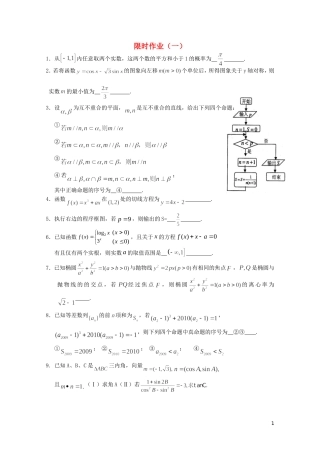 限时作业（一）
1．从[-1,1]内任意取两个实数，这两个数的平方和小于1的概率为__π/4______．
2．若将函数y=cosx-√3sinx的图象向左移m(m>0)个单位后，所得图象关于y轴对称，则
实数m的最小值为__2π/3______．
3．设α,β为互不重合的平面，m,n是互不重合的直线，给出下列四个命题：
①若m//n,n⊂α,则m//α
②
③
④若
其中正确命题的序号为__④______．
4．函数 在(1,2)处的切线方程为y=4x-2______．
5．执行右边的程序框图，若p=9，则输出的S=__2/5______．
6．已知函数f(x)={log₂x (x>0) 3ˣ (x≤0)，且关于x的方程f(x)+x-a=0
有且仅有两个实根，则实数a的取值范围是______
7．已知椭圆x²/a²+y²/b²=1(a>b>0)与抛物线y²=2px(p>0)有相同的焦点F，P,Q是椭圆与
抛物线的的交点，若PQ经过焦点F，则椭圆x²/a²+y²/b²=1(a>b>0)的离心率为
√2-1______．
8．已知等差数列{aₙ}的前n项和为Sₙ，若(a₂-1)³+2010(a₂-1)=1，
(a₂₀₀₉-1)³+2010(a₂₀₀₉-1)=-1，则下列四个命题中真命题的序号为__②③____．
①S₂₀₀₉=2009； ②S₂₀₁₀=2010； ③a₂₀₀₉<a₂； ④S₂₀₀₉<S₂
9．已知A、B、C是△ABC三内角，向量m=(-1,√3),n=(cosA,sinA),
且m•n=1．（Ⅰ）求角A（Ⅱ）若(1+sin2B)/(cos²B-sin²B)=-3,求tanC.
开始
输入p
n=1,S=0
n<p
是
否
输出S
结束
n=n+1
1